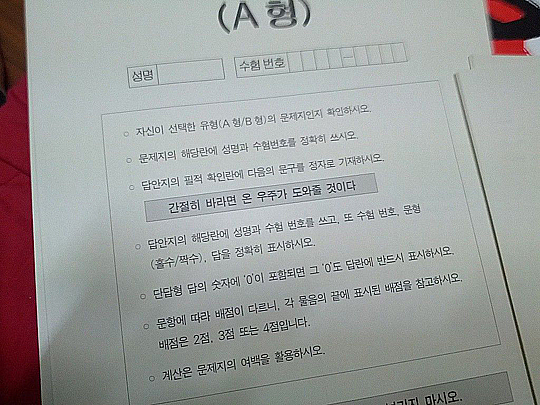 (A 형)
성명
수험 번호 –
○ 자신이 선택한 유형(A 형/B 형)의 문제지인지 확인하시오.
○ 문제지의 해당란에 성명과 수험번호를 정확히 쓰시오.
○ 답안지의 필적 확인란에 다음의 문구를 정자로 기재하시오.
간절히 바라면 온 우주가 도와줄 것이다
○ 답안지의 해당란에 성명과 수험 번호를 쓰고, 또 수험 번호, 문형
(홀수/짝수), 답을 정확히 표시하시오.
○ 단답형 답의 숫자에 '0'이 포함되면 그 '0'도 답란에 반드시 표시하시오.
○ 문항에 따라 배점이 다르니, 각 물음의 끝에 표시된 배점을 참고하시오.
배점은 2점, 3점 또는 4점입니다.
○ 계산은 문제지의 여백을 활용하시오.
마시오.